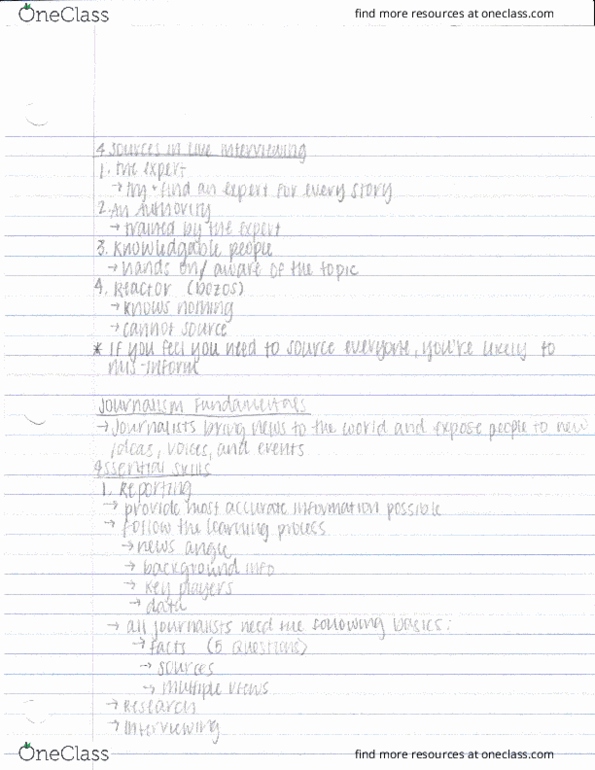 OneClass
find more resources at oneclass.com
4 Sources in Live Interviewing
1. The expert
→ try + find an expert for every story
2. An Authority
→ trained by the expert
3. Knowledgable people
→ hands on/ aware of the topic
4. Reactor (bozos)
→ knows nothing
→ cannot source
* If you feel you need to source everyone, you're likely to
mis-inform
Journalism Fundamentals
→ Journalists bring news to the world and expose people to new
ideas, voices, and events
Essential skills
1. Reporting
→ provide most accurate information possible
→ follow the learning process
→ news angle
→ background info
→ key players
→ data
→ all journalists need the following basics:
→ facts (5 questions)
→ sources
→ multiple views
→ Research
→ Interviewing
OneClass
find more resources at oneclass.com